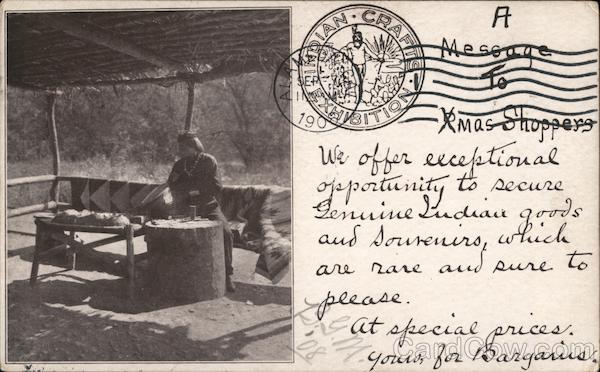 A
Message
To
Xmas Shoppers
INDIAN · CRAFTS
EXHIBITION
190
We offer exceptional
opportunity to secure
Genuine Indian goods
and Souvenirs, which
are rare and sure to
please.
At special prices.
Yours for Bargains.
G.M.
'08
CardCow.com